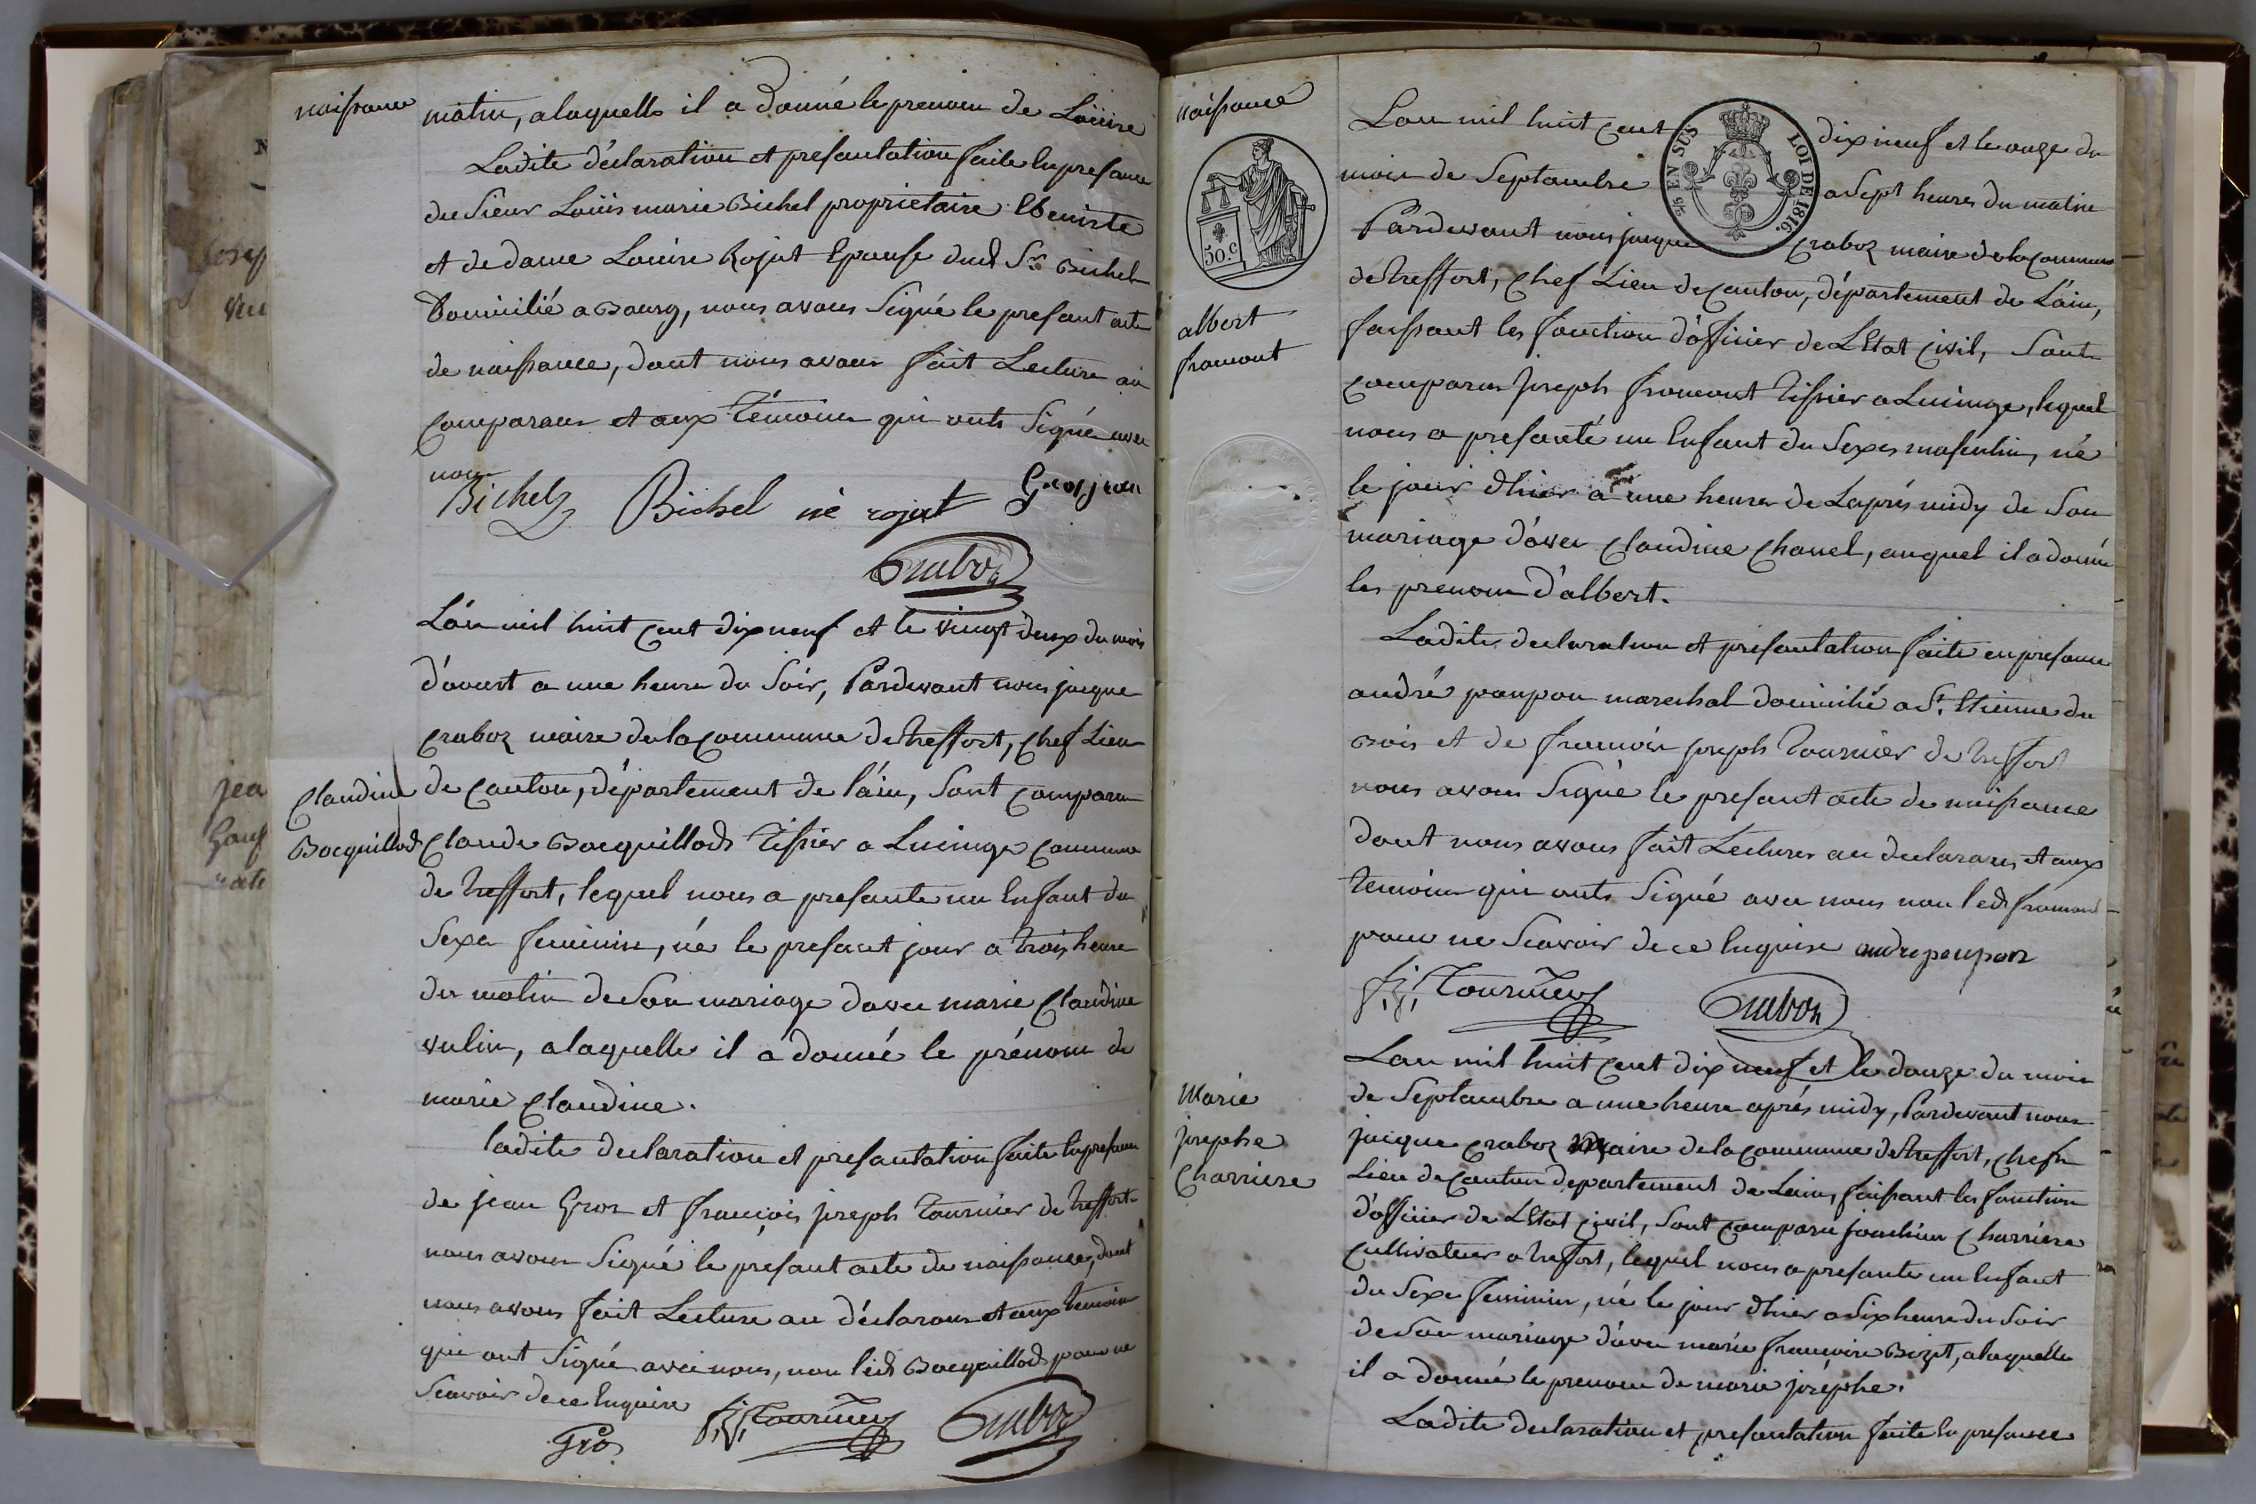 naissance
matin, alaquelle il a donné le prenom de Loüise
Ladite déclaration et presantation faite En presance
du Sieur Loüis marie Bichel proprietaire Ebeniste
et de dame Louise Rojat Epouse dud Sr. Bichel
Domicilié a Bourg, nous avons Signé le presant acte
de naissance, dont nous avons fait Lecture au
Comparans et aux Témoins qui onts Signé avec
nous
Bichel Bichel né rojat Grosjean
Craboz
L'án mil huit Cent dix neuf et le vingt deux du mois
d'aoust a une heure du Soir, Pardevant nous jacque
Craboz maire de la Commune de treffort, Chef Lieu
Claudine
de Canton, département de l'áin, Sont Comparu
Bocquillod
Claude Bocquillods Tissier a Lucinge Commune
de treffort, lequel nous a presante un Enfant du
Sexe feminin, né le presant jour a trois heure
du matin de Son mariage davec marie Claudine
vulin, alaquelle il a donnée le prénom de
marie Claudine.
ladite declaration et presantation faite En presance
de jean Gros et francois joseph Tournier de treffort
nous avons Signé le présant acte de naissance, dont
nous avons fait Lecture au déclarans et aux temoins
qui ont Signé avec nous, non led Bocquillods pour ne
Scavoir de ce Enquire
f,j,Tournier
Craboz
Gros
naissance
50.C
albert
fromont
EN SUS
LOI DE 1816.
Lan mil huit Cent dix neuf et le onze du
mois de Septambre a Sept heures du matin
Pardevant nous jacque Craboz maire de la Commune
de treffort, Chef Lieu de Canton, département de L'ain,
faissant les fonction d'officier de L'Etat Civil, Sont
comparus Joseph fromont Tissier a Lucinge, lequel
nous a presanté un Enfant du Sexes masculin, né
le jour dhier a une heures de Laprés midy de Son
mariage d'avec Claudine Chanel, auquel il a donné
les prenom d'albert.
Ladite declaration et présantation faite en presance
andré poupon marechal domicilié a St. Etienne du
Bois et de francois joseph Tournier de treffort
nous avons Signé le presant acte de naissance
dont nous avons fait Lectures au declarans, et aux
temoins qui onts Signé avec nous non led fromont
pour ne Scavoir de ce Enquire andre poupon
f,j,Tournier
Craboz
Lan mil huit Cent dix neuf et le douze du mois
Marie
de Septambre a une heure aprés midy, Pardevant nous
josephe
jacque Craboz maire de la Commune de treffort, Chef
Charriere
Lieu de Canton departement de Lain, faissant les fonction
d'officier de L'Etat Civil, Sont Comparu joachim Charriére
Cultivateur a treffort, lequel nous a presante un Enfant
du Sexe feminin, né le jour dhier a Six heure du Soir
de Son mariage d'avec marie francoise Bozet, alaquelle
il a donné le prenom de marie joséphe.
Ladite declaration et presantation faite En presance